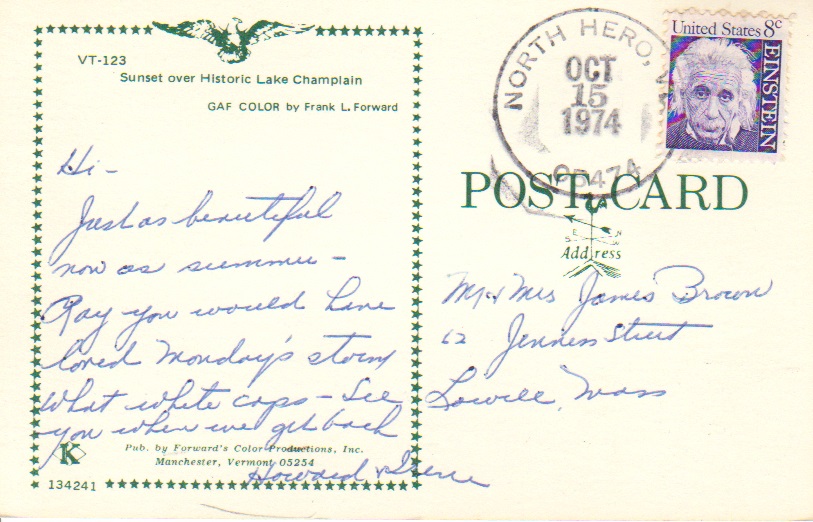 VT-123
Sunset over Historic Lake Champlain
GAF COLOR by Frank L. Forward
Hi -
Just as beautiful
now as summer -
Ray you would have
loved Monday's storm
What white caps - See
you when we get back
Howard & Irene
Pub. by Forward's Color Productions, Inc.
Manchester, Vermont 05254
K
134241
NORTH HERO,
OCT
15
1974
05474
United States 8c
EINSTEIN
POST CARD
Address
Mr & Mrs James Brown
62 Jenness Street
Lowell, Mass